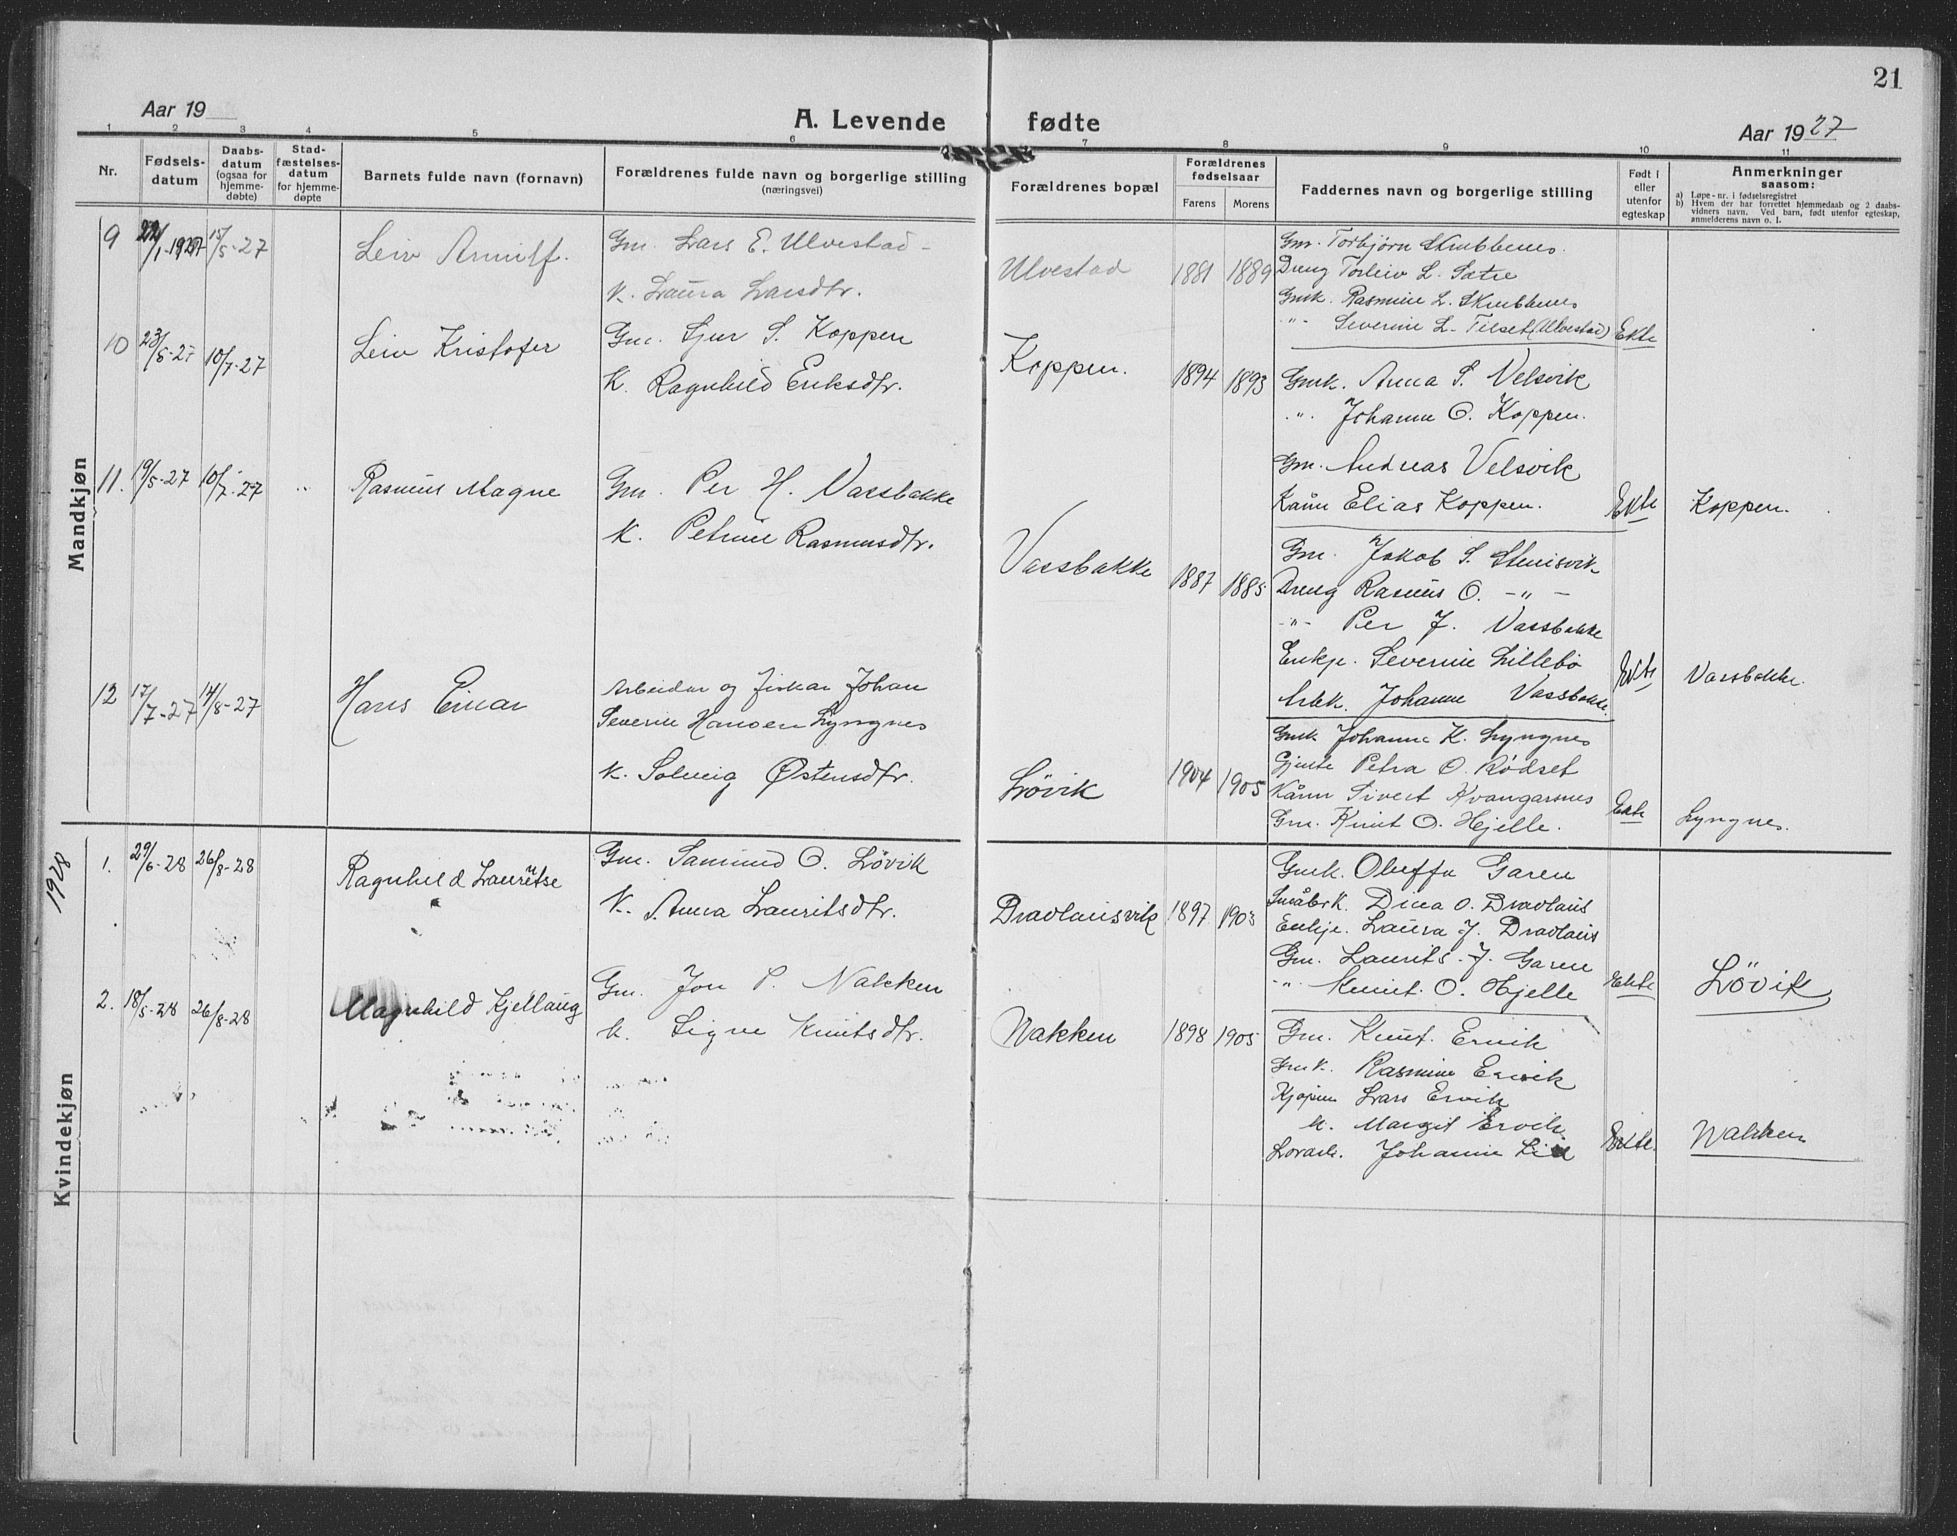 21
Aar 19
A. Levende fødte
Aar 1927
1 2 3 4 5 6 7 8 9 10 11
Nr.
Fødsels-
datum
Daabs-
datum
(ogsaa for
hjemme-
døbte)
Stad-
fæstelses-
datum
for hjemme-
døpte
Barnets fulde navn (fornavn)
Forældrenes fulde navn og borgerlige stilling
(næringsvei)
Forældrenes bopæl
Forældrenes
fødselsaar
Farens Morens
Faddernes navn og borgerlige stilling
Født i
eller
utenfor
egteskap
Anmerkninger
saasom:
a) Løpe-nr. i fødselsregistret
b) Hvem der har forrettet hjemmedaab og 2 daabs-
vidners navn. Ved barn, født utenfor egteskap,
anmelderens navn o. l.
Mandkjøn
9 /1-1927 15/5-27
Leiv Arnulf.
Gm. Lars E. Ulvestad -
K. Laura Larsdtr.
Ulvestad
1881 1889
Gm. Torbjørn Skrubbenes.
Dreng Torleiv L. Sætre
Gmk. Rasmine L. Skrubbenes
-"- Severine L. Tilset (Ulvestad)
Ekte
10 23/5-27 10/7-27
Leiv Kristofer
Gm. Sjur S. Koppen
K. Ragnhild Eriksdtr.
Koppen.
1894 1893
Gmk. Anna S. Velsvik
-"- Johanne O. Koppen.
Gm. Andreas Velsvik
Kårm Elias Koppen.
Ekte
Koppen.
11. 19/5-27 10/7-27 "
Rasmus Magne
Gm. Per H. Vassbakke
K. Petrine Rasmusdtr.
Vassbakke
1887 1885
Gm. Jakob S. Steinsvik
Dreng Rasmus O. -"-
-"- Per J. Vassbakke
Enkje. Severine Lillebø
Arbk. Johanne Vassbakke.
Ekte
Vassbakke.
12 17/7-27 14/8-27
Hans Einar
Arbeidar og fiskar Johan
Severin Hansen Lyngnes
K. Solveig Østensdtr.
Løvik
1904 1905
Gmk Johanne K. Lyngnes
Gjente Petra O. Rødset
Kårm Sivert Kvangarsnes
Gm. Knut O. Hjelle.
Ekte
Lyngnes.
1928
Kvindekjøn
1. 29/6-28 26/8-28
Ragnhild Lauritse
Gm. Samund O. Løvik
K. Anna Lauritsdtr.
Dravlausvik
1897 1903
Gmk. Oluffa Garen
Småbrk. Dina O. Dravlaus
Enkje. Laura J. Dravlaus
Gm. Laurits J. Garen
-"- Knut O. Hjelle
Ekte
Løvik
2. 18/5-28 26/8-28
Magnhild Kjellaug
Gm. Jon P. Nakken
K. Signe Knutsdtr.
Nakken
1898 1905
Gm. Knut Ervik
Gmk. Rasmine Ervik
Kjøpm Lars Ervik
K. Margit Ervik
Johanne
Ekte.
Nakken